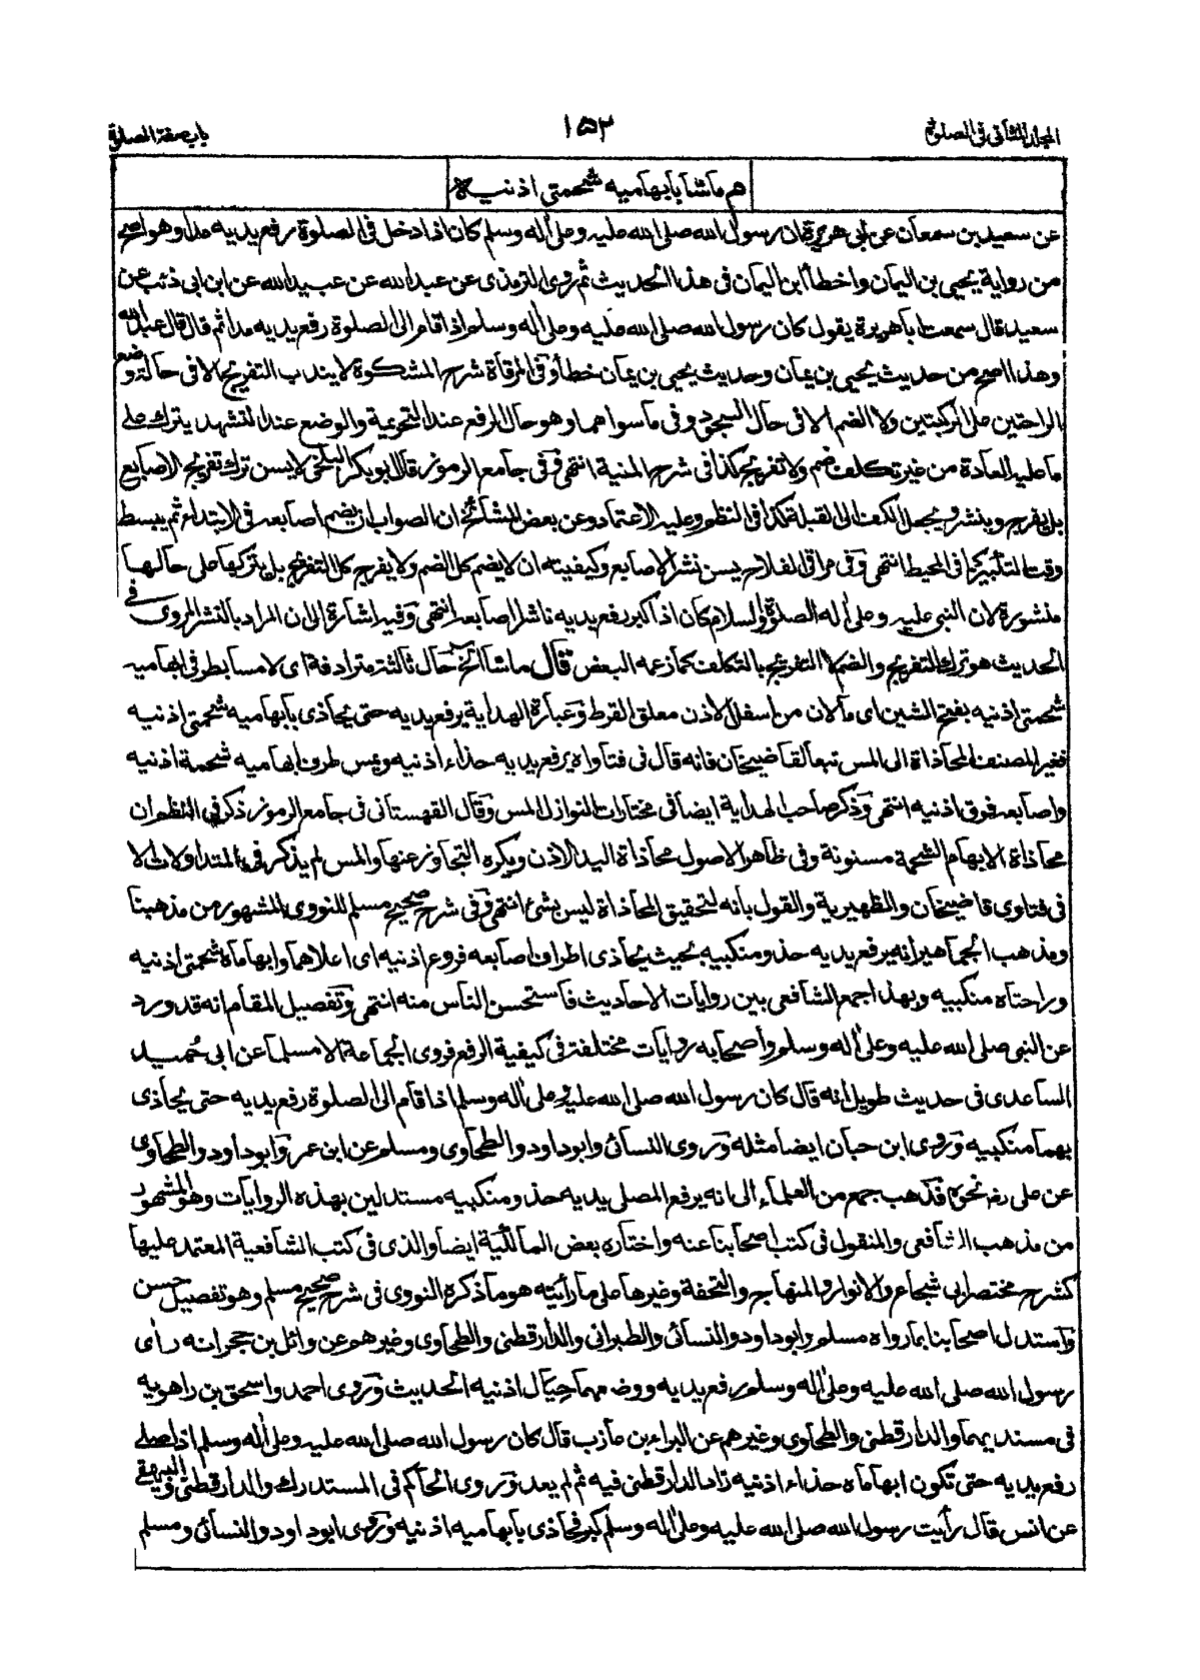 المجلد الثانى فى الصلوة
١٥٢
باب صفة الصلوة
هم ماسا بابهاميه شحمتى اذنيه
عن سعيد بن سمعان عن ابى هريرة ان رسول الله صلى الله عليه وعلى اله وسلم كان اذا دخل فى الصلوة رفع يديه مدا وهو اصح
من رواية يحيى بن اليمان واخطأ ابن اليمان فى هذا الحديث ثم روى الترمذى عن عبد الله عن عبيد الله عن ابن ابى ذئب عن
سعيد قال سمعت ابا هريرة يقول كان رسول الله صلى الله عليه وعلى اله وسلم اذا قام الى الصلوة رفع يديه مدا ثم قال قال عبد الله
وهذا اصح من حديث يحيى بن يمان وحديث يحيى بن يمان خطأ وفى المرقاة شرح المشكوة لا يندب التفريج الا فى حالة وضع
الراحتين على الركبتين ولا الضم الا فى حال السجود وفى ما سواهما وهو حال الرفع عند التحريمة والوضع عند التشهد يترك على
ما عليه العادة من غير تكلف ضم ولا تفريج كذا فى شرح المنية انتهى وفى جامع الرموز قال ابو بكر البلخى لا يسن ترك تفريج الاصابع
بل يفرج وينشر ويجعل الكف الى القبلة كذا فى النظم وعليه الاعتماد وعن بعض المشائخ ان الصواب ان يضم اصابعه فى الابتداء ثم يبسط
وقت التكبير كما فى المحيط انتهى وفى مراقى الفلاح يسن نشر الاصابع وكيفيته ان لا يضم كل الضم ولا يفرج كل التفريج بل يتركها على حالها
منشورة لان النبى عليه وعلى اله الصلوة والسلام كان اذا كبر رفع يديه ناشرا اصابعه انتهى وفيه اشارة الى ان المراد بالنشر المروى فى
الحديث هو ترك التفريج والضم لا التفريج بالتكلف كما زعمه البعض قال ماسا الخ حال ثالثة مترادفة اى لامسا بطرفى ابهاميه
شحمتى اذنيه بفتح الشين اى ما لان من اسفل الاذن معلق القرط وعبارة الهداية يرفع يديه حتى يحاذى بابهاميه شحمتى اذنيه
فغير المصنف المحاذاة الى المس تبعا لقاضيخان فانه قال فى فتاواه يرفع يديه حذاء اذنيه ويمس طرف ابهاميه شحمة اذنيه
واصابعه فوق اذنيه انتهى وذكر صاحب الهداية ايضا فى مختارات النوازل المس وقال القهستانى فى جامع الرموز ذكر فى النظم ان
محاذاة الابهام الشحمة مسنونة وفى ظاهر الاصول محاذاة اليد الاذن ويكره التجاوز عنها والمس لم يذكر فى المتداولات الا
فى فتاوى قاضيخان والظهيرية والقول بانه لتحقيق المحاذاة ليس بشئ انتهى وفى شرح صحيح مسلم للنووى المشهور من مذهبنا
ومذهب الجماهير انه يرفع يديه حذو منكبيه بحيث يحاذى اطراف اصابعه فروع اذنيه اى اعلاهما وابهاماه شحمتى اذنيه
وراحتاه منكبيه وبهذا جمع الشافعى بين روايات الاحاديث فاستحسن الناس منه انتهى وتفصيل المقام انه قد ورد
عن النبى صلى الله عليه وعلى اله وسلم واصحابه روايات مختلفة فى كيفية الرفع فروى الجماعة الا مسلما عن ابى حميد
الساعدى فى حديث طويل انه قال كان رسول الله صلى الله عليه وعلى اله وسلم اذا قام الى الصلوة رفع يديه حتى يحاذى
بهما منكبيه وروى ابن حبان ايضا مثله وروى النسائى وابوداود والطحاوى ومسلم عن ابن عمر وابوداود والطحاوى
عن على رضه نحوه فذهب جمع من العلماء الى انه يرفع المصلى يديه حذو منكبيه مستدلين بهذه الروايات وهو المشهور
من مذهب الشافعى والمنقول فى كتب اصحابنا عنه واختاره بعض المالكية ايضا والذى فى كتب الشافعية المعتمد عليها
كشرح مختصر ابى شجاع والانوار والمنهاج والتحفة وغيرها على ما رأيته هو ما ذكره النووى فى شرح صحيح مسلم وهو تفصيل حسن
واستدل اصحابنا بما رواه مسلم وابوداود والنسائى والطبرانى والدارقطنى والطحاوى وغيرهم عن وائل بن حجر انه رأى
رسول الله صلى الله عليه وعلى اله وسلم رفع يديه ووضعهما حيال اذنيه الحديث وروى احمد واسحق بن راهويه
فى مسنديهما والدارقطنى والطحاوى وغيرهم عن البراء بن عازب قال كان رسول الله صلى الله عليه وعلى اله وسلم اذا صلى
رفع يديه حتى تكون ابهاماه حذاء اذنيه زاد الدارقطنى فيه ثم لم يعد وروى الحاكم فى المستدرك والدارقطنى والبيهقى
عن انس قال رأيت رسول الله صلى الله عليه وعلى اله وسلم كبر فحاذى بابهاميه اذنيه وروى ابوداود والنسائى ومسلم